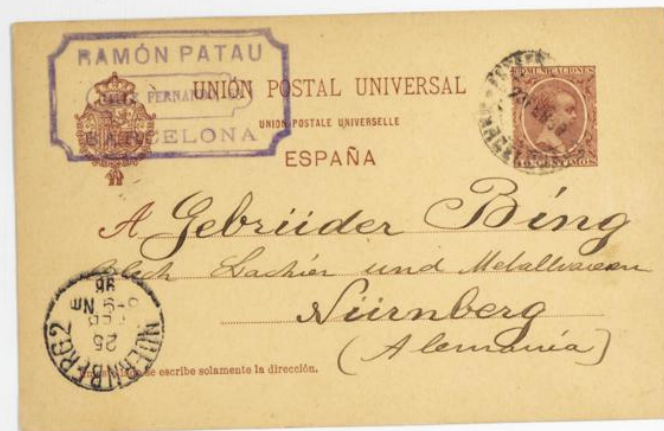 RAMÓN PATAU
FERNANDO
BARCELONA
UNIÓN POSTAL UNIVERSAL
UNION POSTALE UNIVERSELLE
ESPAÑA
COMUNICACIONES
10 CENTIMOS
A Gebrüder Bing
Blech Lackier und Metallwaren
Nürnberg
(Alemania)
NUERNBERG 2
25
FEB
8-9 Nm
96
se escribe solamente la dirección.